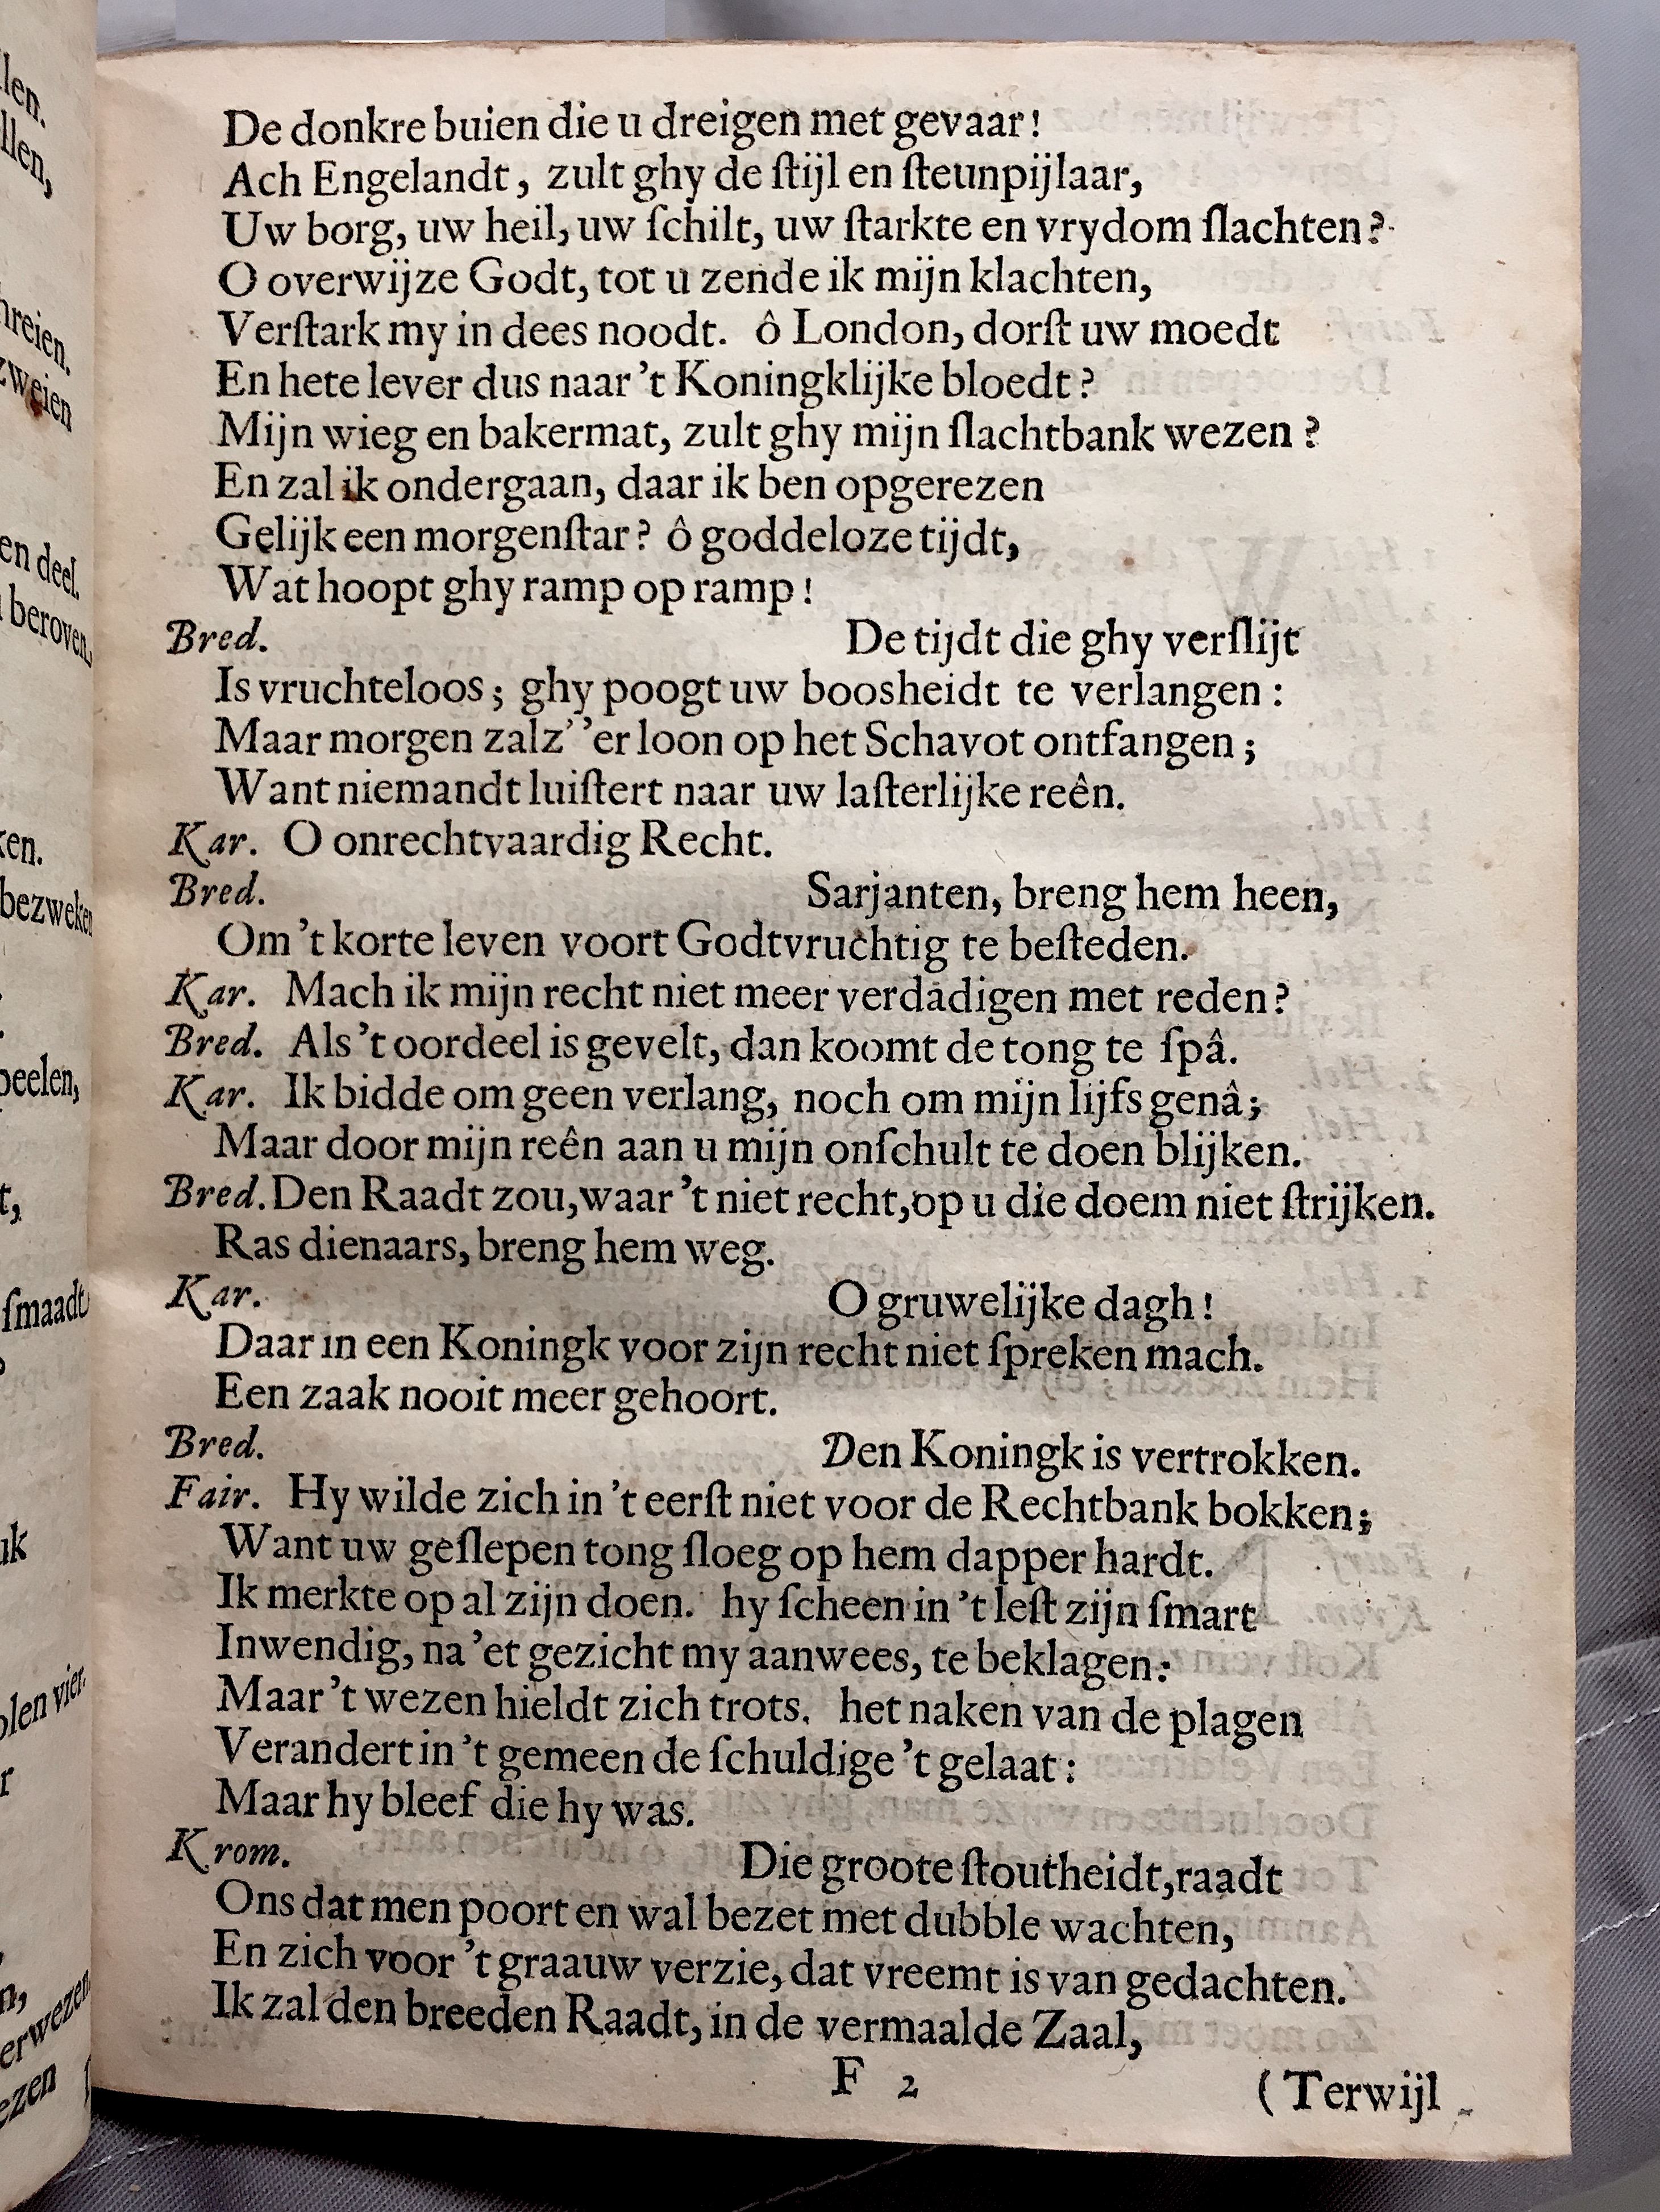 len.
llen,
hreien.
zweien
en deel.
beroven.
ken.
bezweken
peelen,
t,
ſmaadt
uk
olen vier.
r
n,
erwezen
ezen
De donkre buien die u dreigen met gevaar!
Ach Engelandt, zult ghy de ſtijl en ſteunpijlaar,
Uw borg, uw heil, uw ſchilt, uw ſtarkte en vrydom ſlachten?
O overwijze Godt, tot u zende ik mijn klachten,
Verſtark my in dees noodt. ô London, dorſt uw moedt
En hete lever dus naar 't Koningklijke bloedt?
Mijn wieg en bakermat, zult ghy mijn ſlachtbank wezen?
En zal ik ondergaan, daar ik ben opgerezen
Gelijk een morgenſtar? ô goddeloze tijdt,
Wat hoopt ghy ramp op ramp!
Bred. De tijdt die ghy verſlijt
Is vruchteloos; ghy poogt uw boosheidt te verlangen:
Maar morgen zalz' 'er loon op het Schavot ontfangen;
Want niemandt luiſtert naar uw laſterlijke reên.
Kar. O onrechtvaardig Recht.
Bred. Sarjanten, breng hem heen,
Om 't korte leven voort Godtvruchtig te beſteden.
Kar. Mach ik mijn recht niet meer verdådigen met reden?
Bred. Als 't oordeel is gevelt, dan koomt de tong te ſpâ.
Kar. Ik bidde om geen verlang, noch om mijn lijfs genâ;
Maar door mijn reên aan u mijn onſchult te doen blijken.
Bred. Den Raadt zou, waar 't niet recht, op u die doem niet ſtrijken.
Ras dienaars, breng hem weg.
Kar. O gruwelijke dagh!
Daar in een Koningk voor zijn recht niet ſpreken mach.
Een zaak nooit meer gehoort.
Bred. Den Koningk is vertrokken.
Fair. Hy wilde zich in 't eerſt niet voor de Rechtbank bokken;
Want uw geſlepen tong ſloeg op hem dapper hardt.
Ik merkte op al zijn doen. hy ſcheen in 't leſt zijn ſmart
Inwendig, na 'et gezicht my aanwees, te beklagen:
Maar 't wezen hieldt zich trots. het naken van de plagen
Verandert in 't gemeen de ſchuldige 't gelaat:
Maar hy bleef die hy was.
Krom. Die groote ſtoutheidt, raadt
Ons dat men poort en wal bezet met dubble wachten,
En zich voor 't graauw verzie, dat vreemt is van gedachten.
Ik zal den breeden Raadt, in de vermaalde Zaal,
F 2 (Terwijl